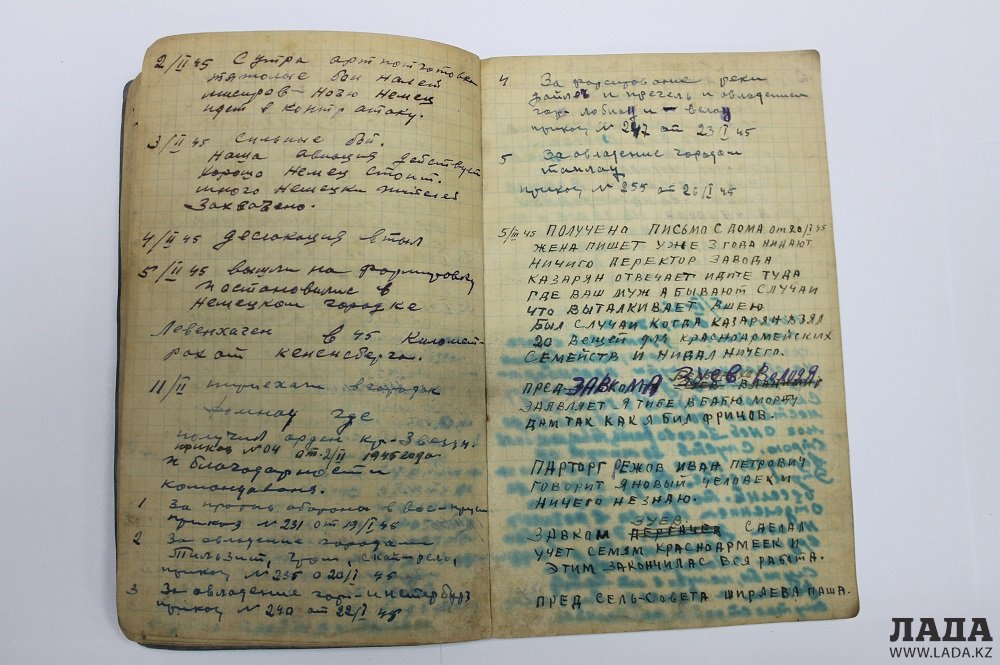 2/II 45 С утра артподготовка
тяжолые бои налет
Немец
идет в контр атаку.
3/II 45 сильные бои.
наша авиация действует
хорошо немец стоит.
много немецки жителей
Захвачено.
4/II 45 деслокация втыл
5/II 45 вышли на формировку
и остановилис в
немецком городке
Левенхаген в 45 километ-
рах от кененсберга.
11/II приехали в городок
Домнау где
получил орден кр-звезды.
приказ № 04 от 2/II 1945 года
и благодарности
командования.
1 За прорыв оборона в Вос-пруси
приказ № 231 от 19/I 45
2 За овладение городами
Тильзит,
приказ № 235 о 20/I 45
3 За овладение гор-инстербург
приказ № 240 от 22/I 45
4 За форсирование реки
и прегель и овладением
гор-лобиау и-велау
приказ № 247 от 23/I 45
5 За овладение городам
тапиау
приказ № 255 от 26/I 45
5/III 45 ПОЛУЧЕНО ПИСЬМО С ДОМА от 20/I 45
ЖЕНА ПИШЕТ УЖЕ 3 ГОДА НИДАЮТ
НИЧИГО ДЕРЕКТОР ЗАВОДА
КАЗАРЯН ОТВЕЧАЕТ ИДИТЕ ТУДА
ГДЕ ВАШ МУЖ А БЫВАЮТ СЛУЧАИ
ЧТО ВЫТАЛКИВАЕТ ВШЕЮ
БЫЛ СЛУЧАИ КОГДА КАЗАРЯН ВЗЯЛ
20 ВЕЩЕЙ ДЛЯ КРАСНОАРМЕЙСКИХ
СЕМЕЙСТВ И НИДАЛ НИЧЕГО.
ПРЕД ЗАВКОМА ЗУЕВ Володя
ЗАЯВЛЯЕТ Я ТИБЕ В БАБЮ МОРДУ
ДАМ ТАК КАК Я БИЛ ФРИЦОВ.
ПАРТОРГ РЕЖОВ ИВАН ПЕТРОВИЧ
ГОВОРИТ Я НОВЫЙ ЧЕЛОВЕК И
НИЧЕГО НЕ ЗНАЮ.
ЗУЕВ
ЗАВКОМ ДЕРГАЧЕВ СДЕЛАЛ
УЧЕТ СЕМЯМ КРАСНОАРМЕЕК И
ЭТИМ ЗАКОНЧИЛАС ВСЯ РАБОТА.
ПРЕД СЕЛЬ-СОВЕТА ШИРЯЕВА ПАША.
ЛАДА
WWW.LADA.KZ